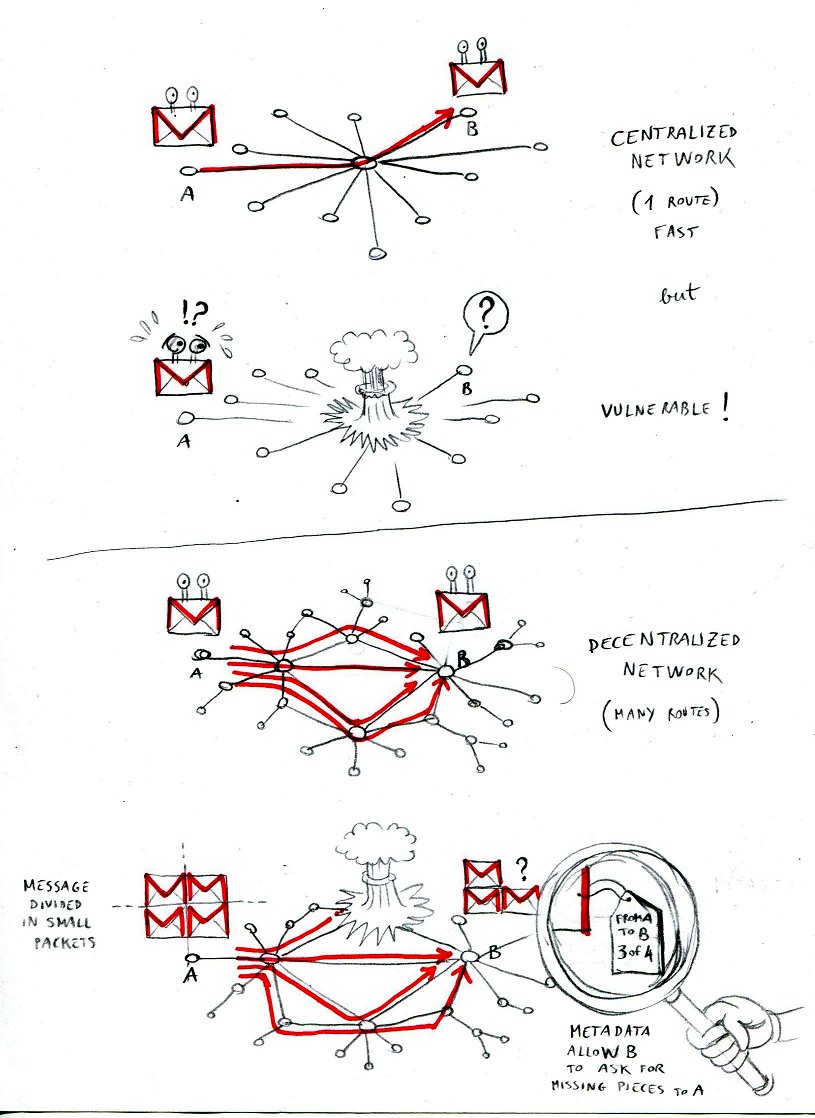 A
B
CENTRALIZED
NETWORK
(1 ROUTE)
FAST
but
!?
?
A
B
VULNERABLE!
A
B
DECENTRALIZED
NETWORK
(MANY ROUTES)
MESSAGE
DIVIDED
IN SMALL
PACKETS
A
?
B
FROM A
TO B
3 of 4
METADATA
ALLOW B
TO ASK FOR
MISSING PIECES TO A